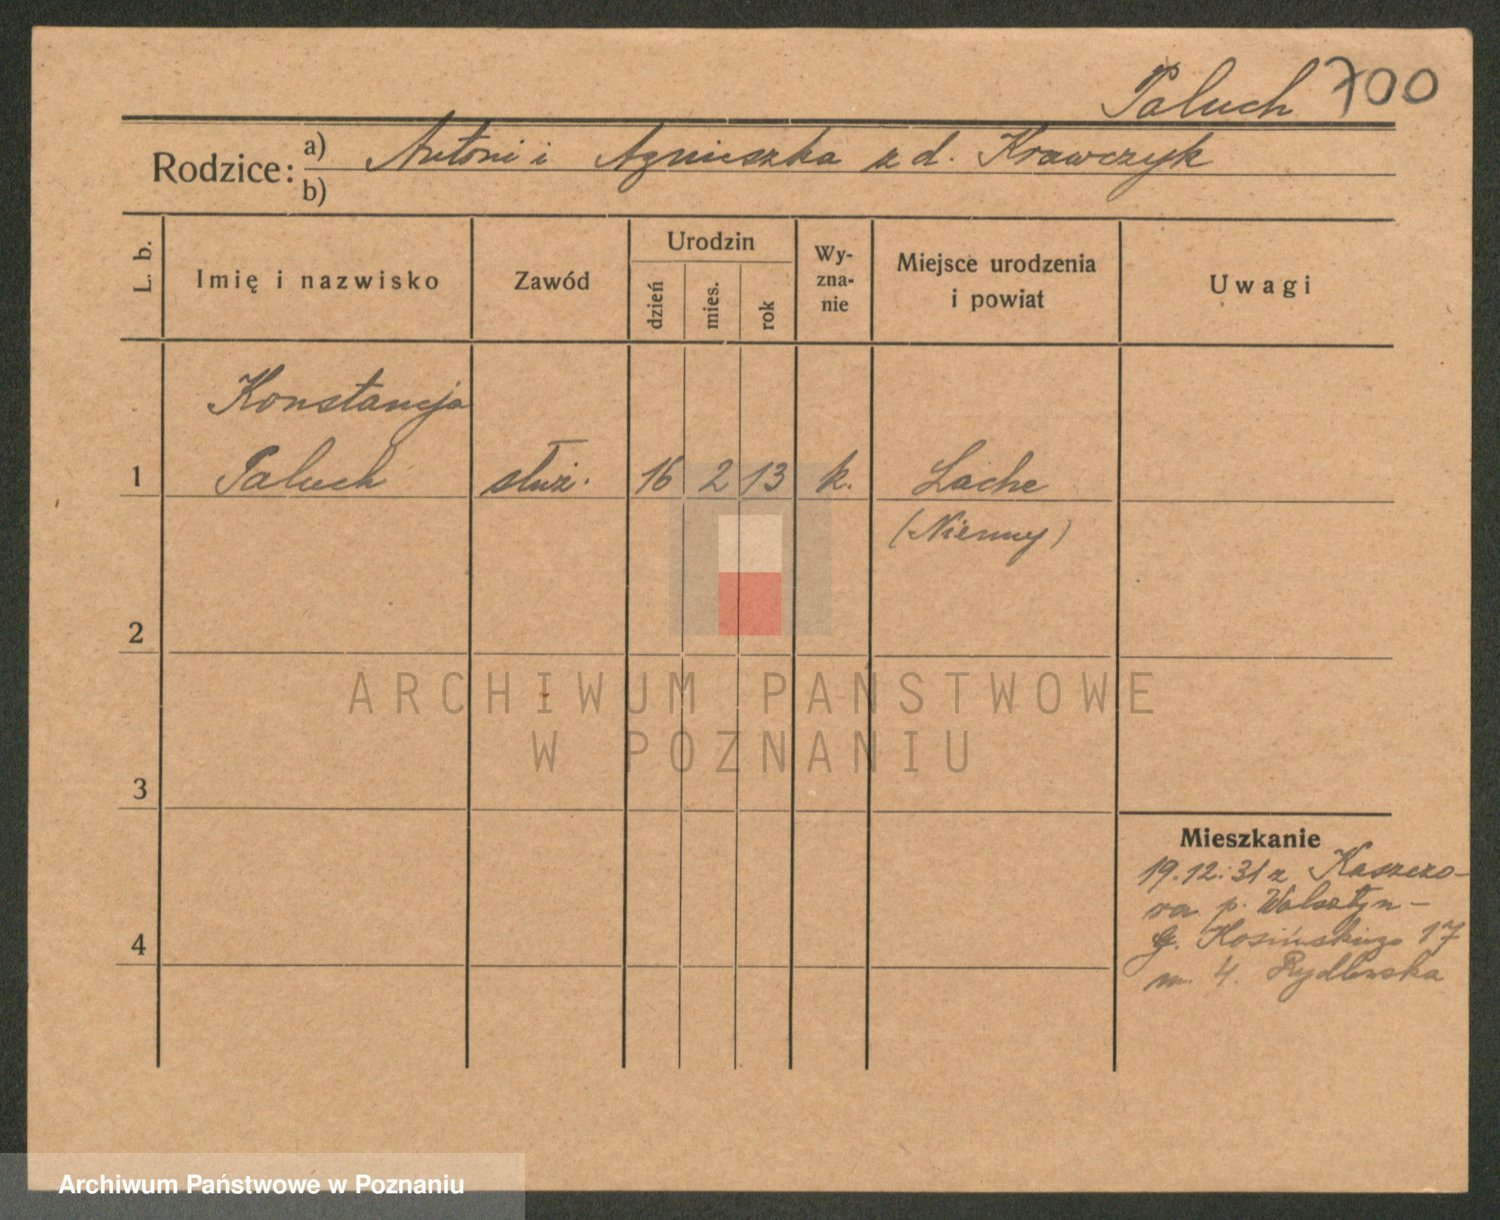 Paluch 700
Rodzice: a) Antoni i Agnieszka z d. Krawczyk
b)
L. b.
Imię i nazwisko
Zawód
Urodzin
dzień
mies.
rok
Wy-
zna-
nie
Miejsce urodzenia
i powiat
Uwagi
Konstancja
1 Paluch służ. 16 2 13 k. Lache
(Niemcy)
2
3
4
Mieszkanie
19.12.31 z Kaszczo-
ra p. Wolsztyn –
G. Kosińskiego 17
m. 4. Rydlewska
ARCHIWUM PAŃSTWOWE
W POZNANIU
Archiwum Państwowe w Poznaniu